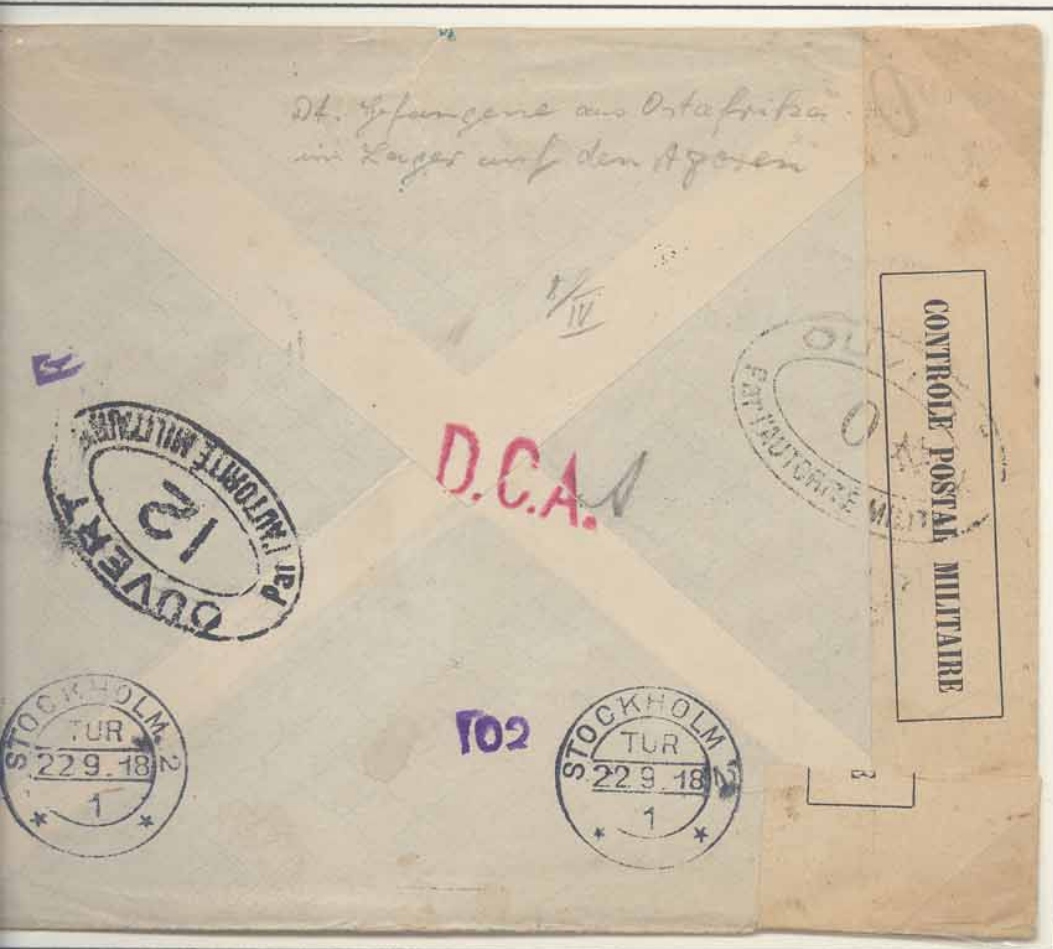 Dt. Gefangene aus Ostafrika
im Lager auf den Azoren
8/IV
OUVERT
Par l'AUTORITÉ MILITAIRE
12
D.C.A.
Par l'AUTORITÉ
CONTRÔLE POSTAL MILITAIRE
STOCKHOLM. 2
TUR
22 9. 18
1
102
STOCKHOLM 2
TUR
22 9. 18
1